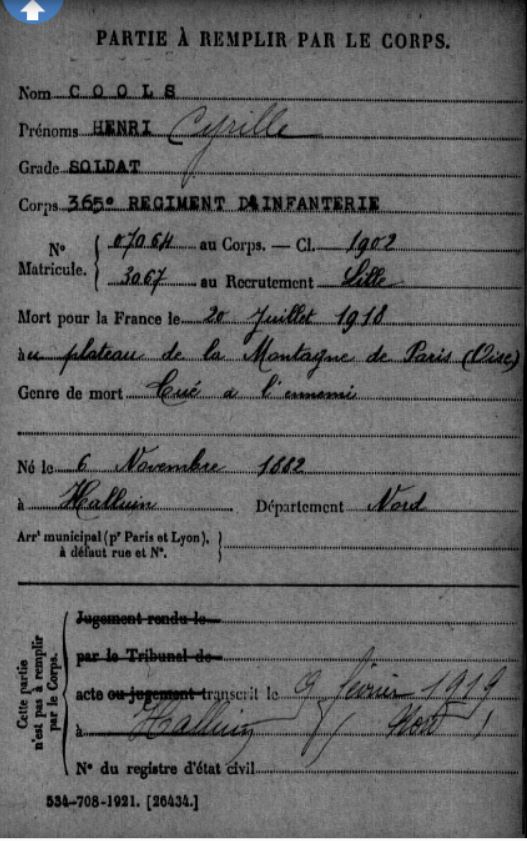 PARTIE À REMPLIR PAR LE CORPS.
Nom COOLS
Prénoms HENRI Cyrille
Grade SOLDAT
Corps 365° REGIMENT D'INFANTERIE
N° Matricule. { 07064 au Corps. — Cl. 1902
3067 au Recrutement Lille
Mort pour la France le 20 Juillet 1918
àu plateau de la Montagne de Paris (Oise)
Genre de mort Tué a l'ennemi
Né le 6 Novembre 1882
à Halluin Département Nord
Arrt municipal (pr Paris et Lyon), à défaut rue et N°. }
Cette partie n'est pas à remplir par le Corps.
Jugement rendu le
par le Tribunal de
acte ou jugement transcrit le 9 février 1919
à Halluin Nord
N° du registre d'état civil
534-708-1921. [26434.]